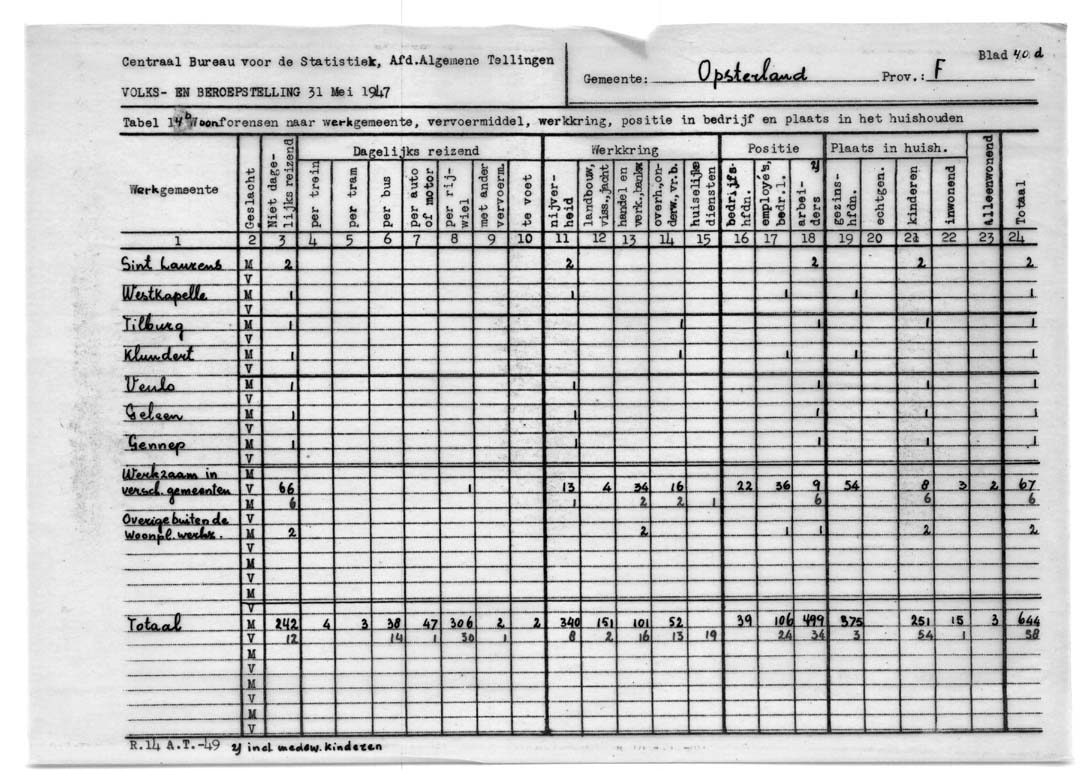 Centraal Bureau voor de Statistiek, Afd.Algemene Tellingen
Gemeente: Opsterland Prov.: F Blad 40 d
VOLKS- EN BEROEPSTELLING 31 Mei 1947
Tabel 14b Woonforensen naar werkgemeente, vervoermiddel, werkkring, positie in bedrijf en plaats in het huishouden
Werkgemeente | Geslacht | Niet dage-lijks reizend | Dagelijks reizend | Werkkring | Positie | Plaats in huish. | alleenwonend | Totaal
per trein | per tram | per bus | per auto of motor | per rij-wiel | met ander vervoerm. | te voet | nijver-heid | landbouw, viss., jacht | handel en verk., bankw | overh., on-derw, vr.b. | huiselijke diensten | bedrijfs-hfdn. | employé's, bedr.l. | arbei-ders 2) | gezins-hfdn. | echtgen. | kinderen | inwonend
1 2 3 4 5 6 7 8 9 10 11 12 13 14 15 16 17 18 19 20 21 22 23 24
Sint Laurens M 2 2 2 2 2
V
Westkapelle M 1 1 1 1 1
V
Tilburg M 1 1 1 1 1
V
Klundert M 1 1 1 1 1
V
Venlo M 1 1 1 1 1
V
Geleen M 1 1 1 1 1
V
Gennep M 1 1 1 1 1
V
Werkzaam in M
versch. gemeenten V 66 1 13 4 34 16 22 36 9 54 8 3 2 67
M 6 1 2 2 1 6 6 6
Overige buiten de V
woonpl. werkz. M 2 2 1 1 2 2
V
M
V
M
V
Totaal M 242 4 3 38 47 306 2 2 340 151 101 52 39 106 499 375 251 15 3 644
V 12 14 1 30 1 8 2 16 13 19 24 34 3 54 1 58
M
V
M
V
M
V
R.14 A.T.-49 2) incl medew. kinderen